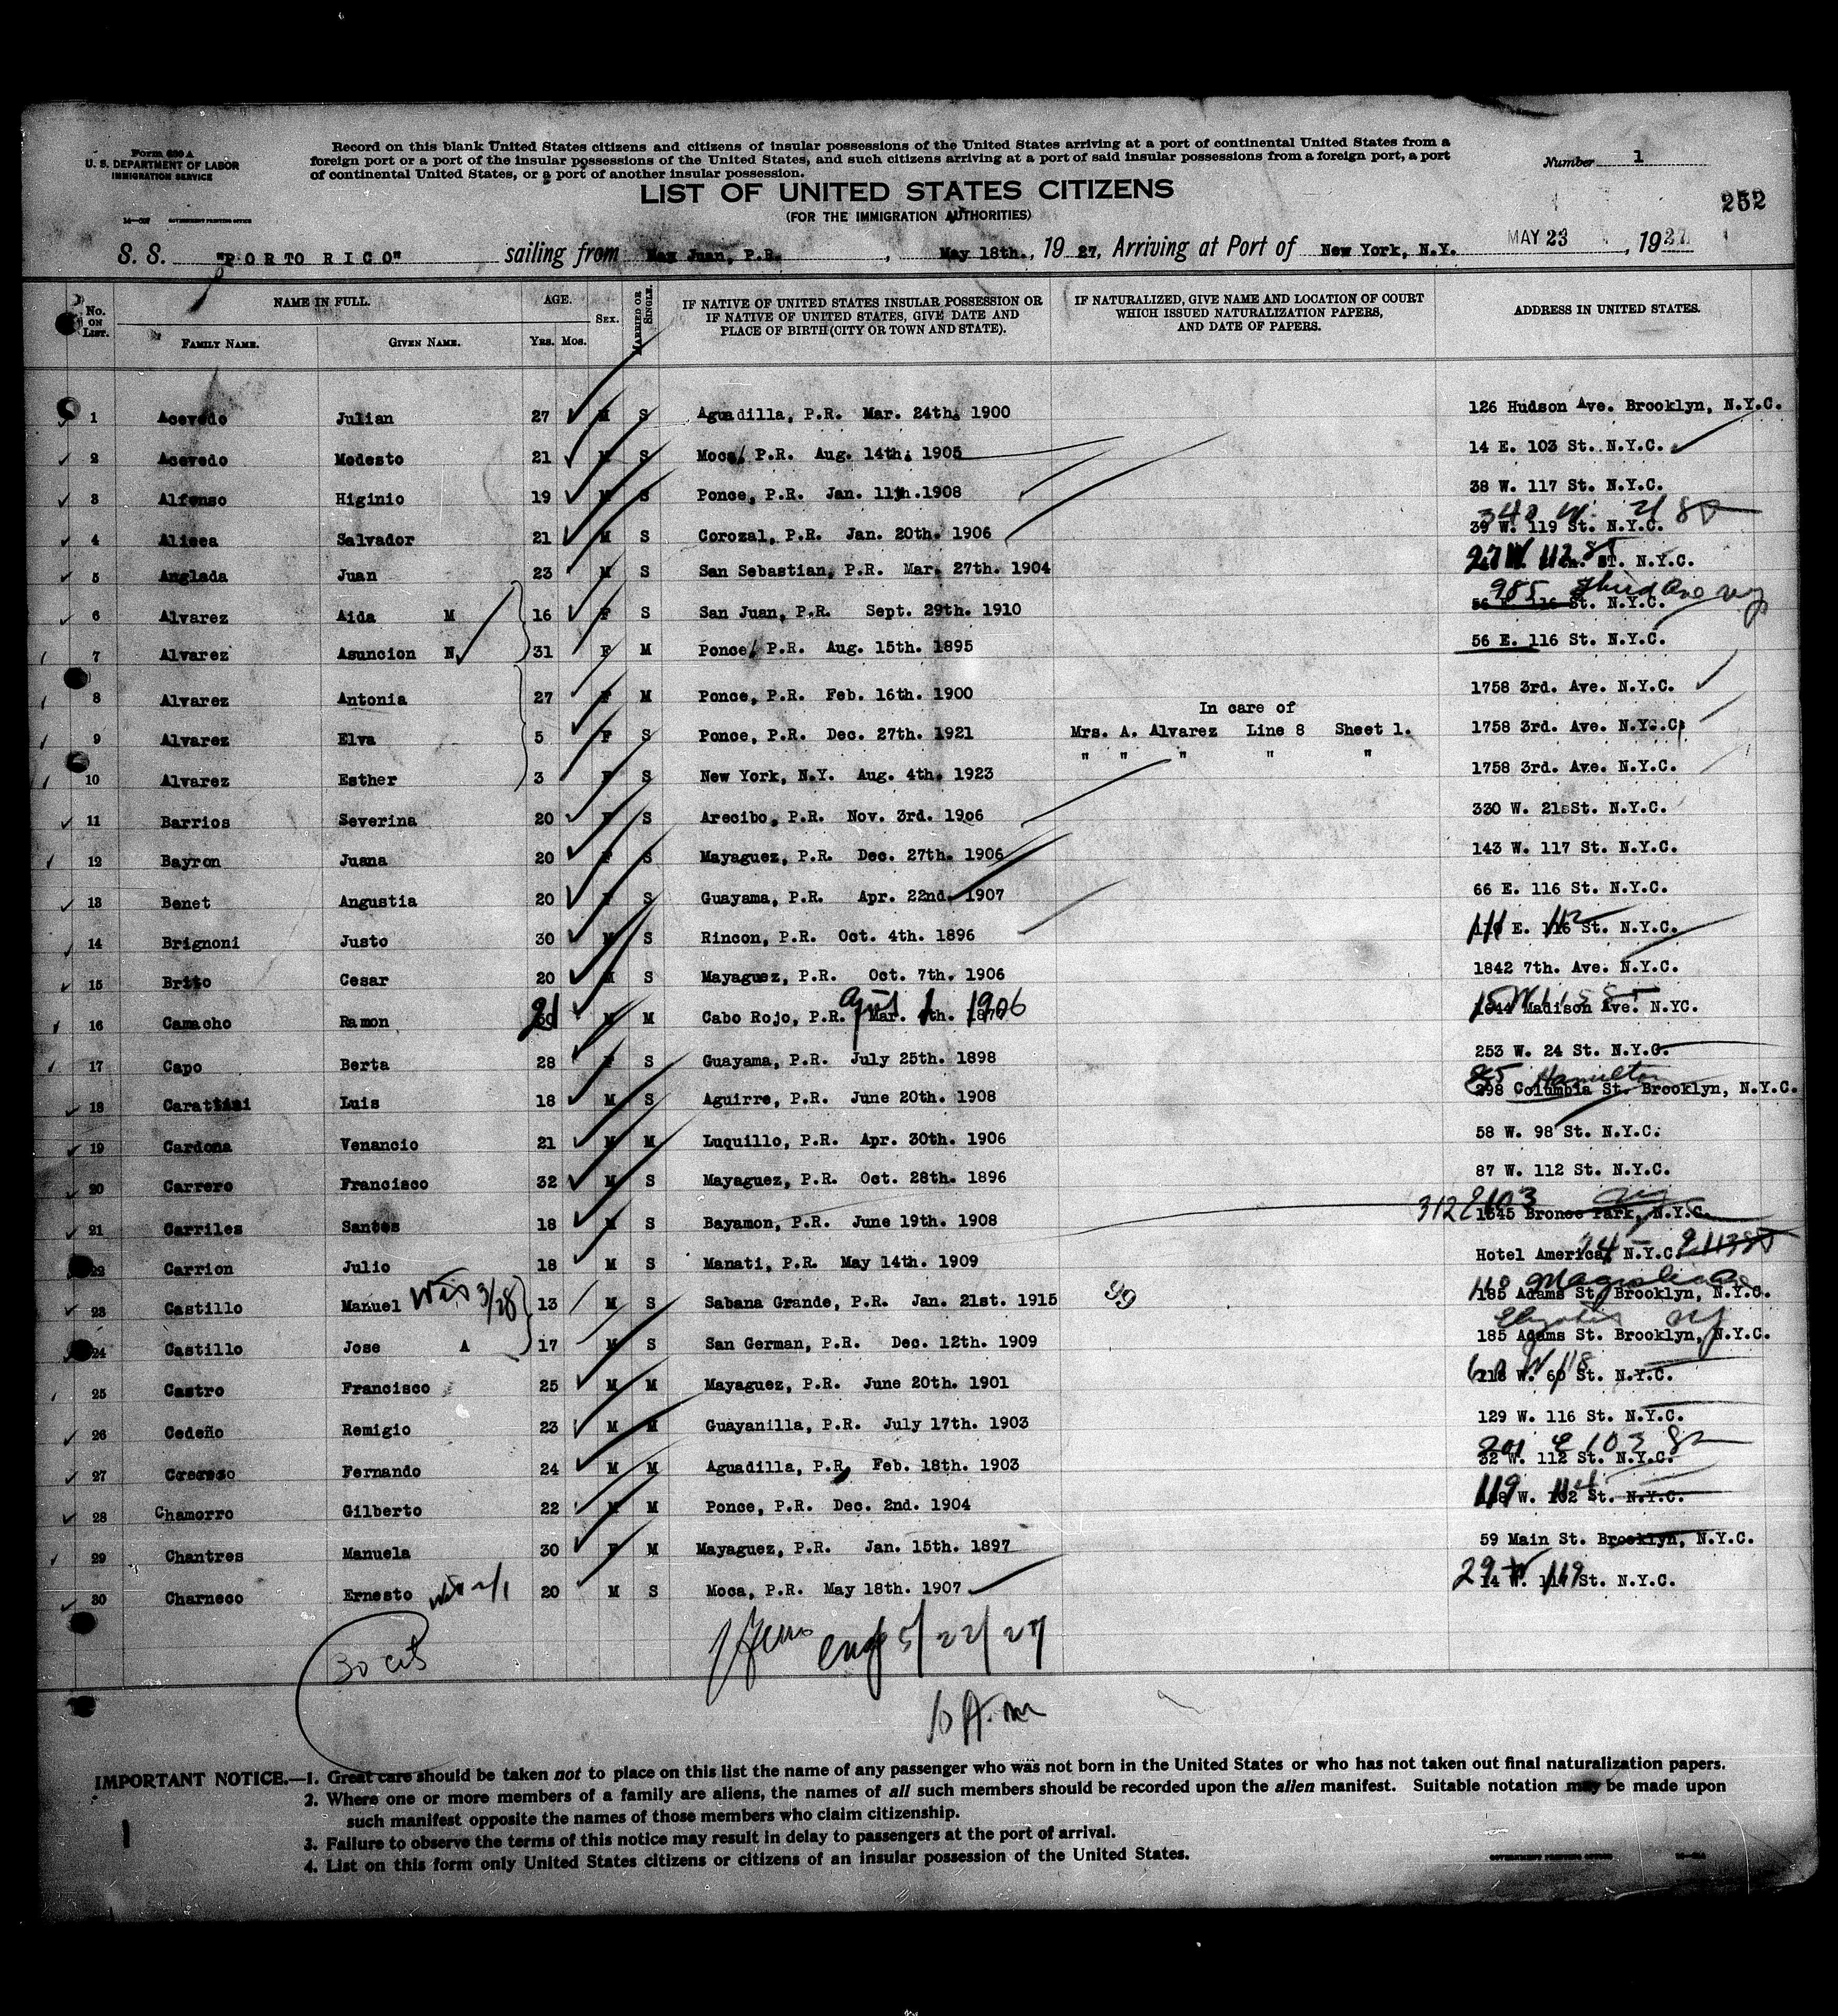 Form 630 A
U. S. DEPARTMENT OF LABOR
IMMIGRATION SERVICE
Record on this blank United States citizens and citizens of insular possessions of the United States arriving at a port of continental United States from a
foreign port or a port of the insular possessions of the United States, and such citizens arriving at a port of said insular possessions from a foreign port, a port
of continental United States, or a port of another insular possession.
Number 1
LIST OF UNITED STATES CITIZENS
(FOR THE IMMIGRATION AUTHORITIES)
252
GOVERNMENT PRINTING OFFICE
S. S. "PORTO RICO" sailing from San Juan, P.R., May 18th., 1927, Arriving at Port of New York, N.Y. MAY 23, 1927
No. ON LIST. NAME IN FULL. AGE. SEX. MARRIED OR SINGLE. IF NATIVE OF UNITED STATES INSULAR POSSESSION OR IF NATIVE OF UNITED STATES, GIVE DATE AND PLACE OF BIRTH (CITY OR TOWN AND STATE). IF NATURALIZED, GIVE NAME AND LOCATION OF COURT WHICH ISSUED NATURALIZATION PAPERS, AND DATE OF PAPERS. ADDRESS IN UNITED STATES.
FAMILY NAME. GIVEN NAME. YRS. MOS.
1 Acevedo Julian 27 M S Aguadilla, P.R. Mar. 24th. 1900 126 Hudson Ave. Brooklyn, N.Y.C.
2 Acevedo Modesto 21 M S Moca, P.R. Aug. 14th. 1905 14 E. 103 St. N.Y.C.
3 Alfonso Higinio 19 M S Ponce, P.R. Jan. 11th.1908 38 W. 117 St. N.Y.C.
4 Alicea Salvador 21 M S Corozal, P.R. Jan. 20th. 1906 39 W. 119 St. N.Y.C. 340 W. 21 St
5 Anglada Juan 23 M S San Sebastian, P.R. Mar. 27th. 1904 27 W 112 St. N.Y.C.
6 Alvarez Aida M 16 F S San Juan, P.R. Sept. 29th. 1910 56 E. 116 St. N.Y.C. 985 Third Ave NY
7 Alvarez Asuncion N 31 F M Ponce, P.R. Aug. 15th. 1895 56 E. 116 St. N.Y.C.
8 Alvarez Antonia 27 F M Ponce, P.R. Feb. 16th. 1900 1758 3rd. Ave. N.Y.C.
In care of
9 Alvarez Elva 5 F S Ponce, P.R. Dec. 27th. 1921 Mrs. A. Alvarez Line 8 Sheet 1. 1758 3rd. Ave. N.Y.C.
10 Alvarez Esther 3 F S New York, N.Y. Aug. 4th. 1923 " " " " " 1758 3rd. Ave. N.Y.C.
11 Barrios Severina 20 F S Arecibo, P.R. Nov. 3rd. 1906 330 W. 21sSt. N.Y.C.
12 Bayron Juana 20 F S Mayaguez, P.R. Dec. 27th. 1906 143 W. 117 St. N.Y.C.
13 Benet Angustia 20 F S Guayama, P.R. Apr. 22nd. 1907 66 E. 116 St. N.Y.C.
14 Brignoni Justo 30 M S Rincon, P.R. Oct. 4th. 1896 111 E. 112 St. N.Y.C.
15 Brito Cesar 20 M S Mayaguez, P.R. Oct. 7th. 1906 1842 7th. Ave. N.Y.C.
16 Camacho Ramon 21 M M Cabo Rojo, P.R. Mar. 1906 1644 Madison Ave. N.YC.
17 Capo Berta 28 F S Guayama, P.R. July 25th. 1898 253 W. 24 St. N.Y.C.
18 Carattini Luis 18 M S Aguirre, P.R. June 20th. 1908 298 Columbia St. Brooklyn, N.Y.C. 85 Hamilton
19 Cardona Venancio 21 M M Luquillo, P.R. Apr. 30th. 1906 58 W. 98 St. N.Y.C.
20 Carrero Francisco 32 M S Mayaguez, P.R. Oct. 28th. 1896 87 W. 112 St. N.Y.C.
21 Carriles Santos 18 M S Bayamon, P.R. June 19th. 1908 312 E 103 1545 Bronce Park, N.Y.C.
22 Carrion Julio 18 M S Manati, P.R. May 14th. 1909 Hotel America, N.Y.C.
23 Castillo Manuel 3/28 13 M S Sabana Grande, P.R. Jan. 21st. 1915 99 185 Adams St. Brooklyn, N.Y.C. 118 Magnolia Ave
24 Castillo Jose A 17 M S San German, P.R. Dec. 12th. 1909 185 Adams St. Brooklyn, N.Y.C.
25 Castro Francisco 25 M M Mayaguez, P.R. June 20th. 1901 218 W. 60 St. N.Y.C.
26 Cedeño Remigio 23 M M Guayanilla, P.R. July 17th. 1903 129 W. 116 St. N.Y.C.
27 Fernando 24 M M Aguadilla, P.R. Feb. 18th. 1903 32 W. 112 St. N.Y.C. 201 E 103 St
28 Chamorro Gilberto 22 M M Ponce, P.R. Dec. 2nd. 1904 119 W. 114 St. N.Y.C.
29 Chantres Manuela 30 F M Mayaguez, P.R. Jan. 15th. 1897 59 Main St. Brooklyn, N.Y.C.
30 Charneco Ernesto 20 M S Moca, P.R. May 18th. 1907 29 W. 119 St. N.Y.C.
30 cit
5/22/27
10 A.m
IMPORTANT NOTICE.—1. Great care should be taken not to place on this list the name of any passenger who was not born in the United States or who has not taken out final naturalization papers.
2. Where one or more members of a family are aliens, the names of all such members should be recorded upon the alien manifest. Suitable notation may be made upon
such manifest opposite the names of those members who claim citizenship.
3. Failure to observe the terms of this notice may result in delay to passengers at the port of arrival.
4. List on this form only United States citizens or citizens of an insular possession of the United States.
GOVERNMENT PRINTING OFFICE